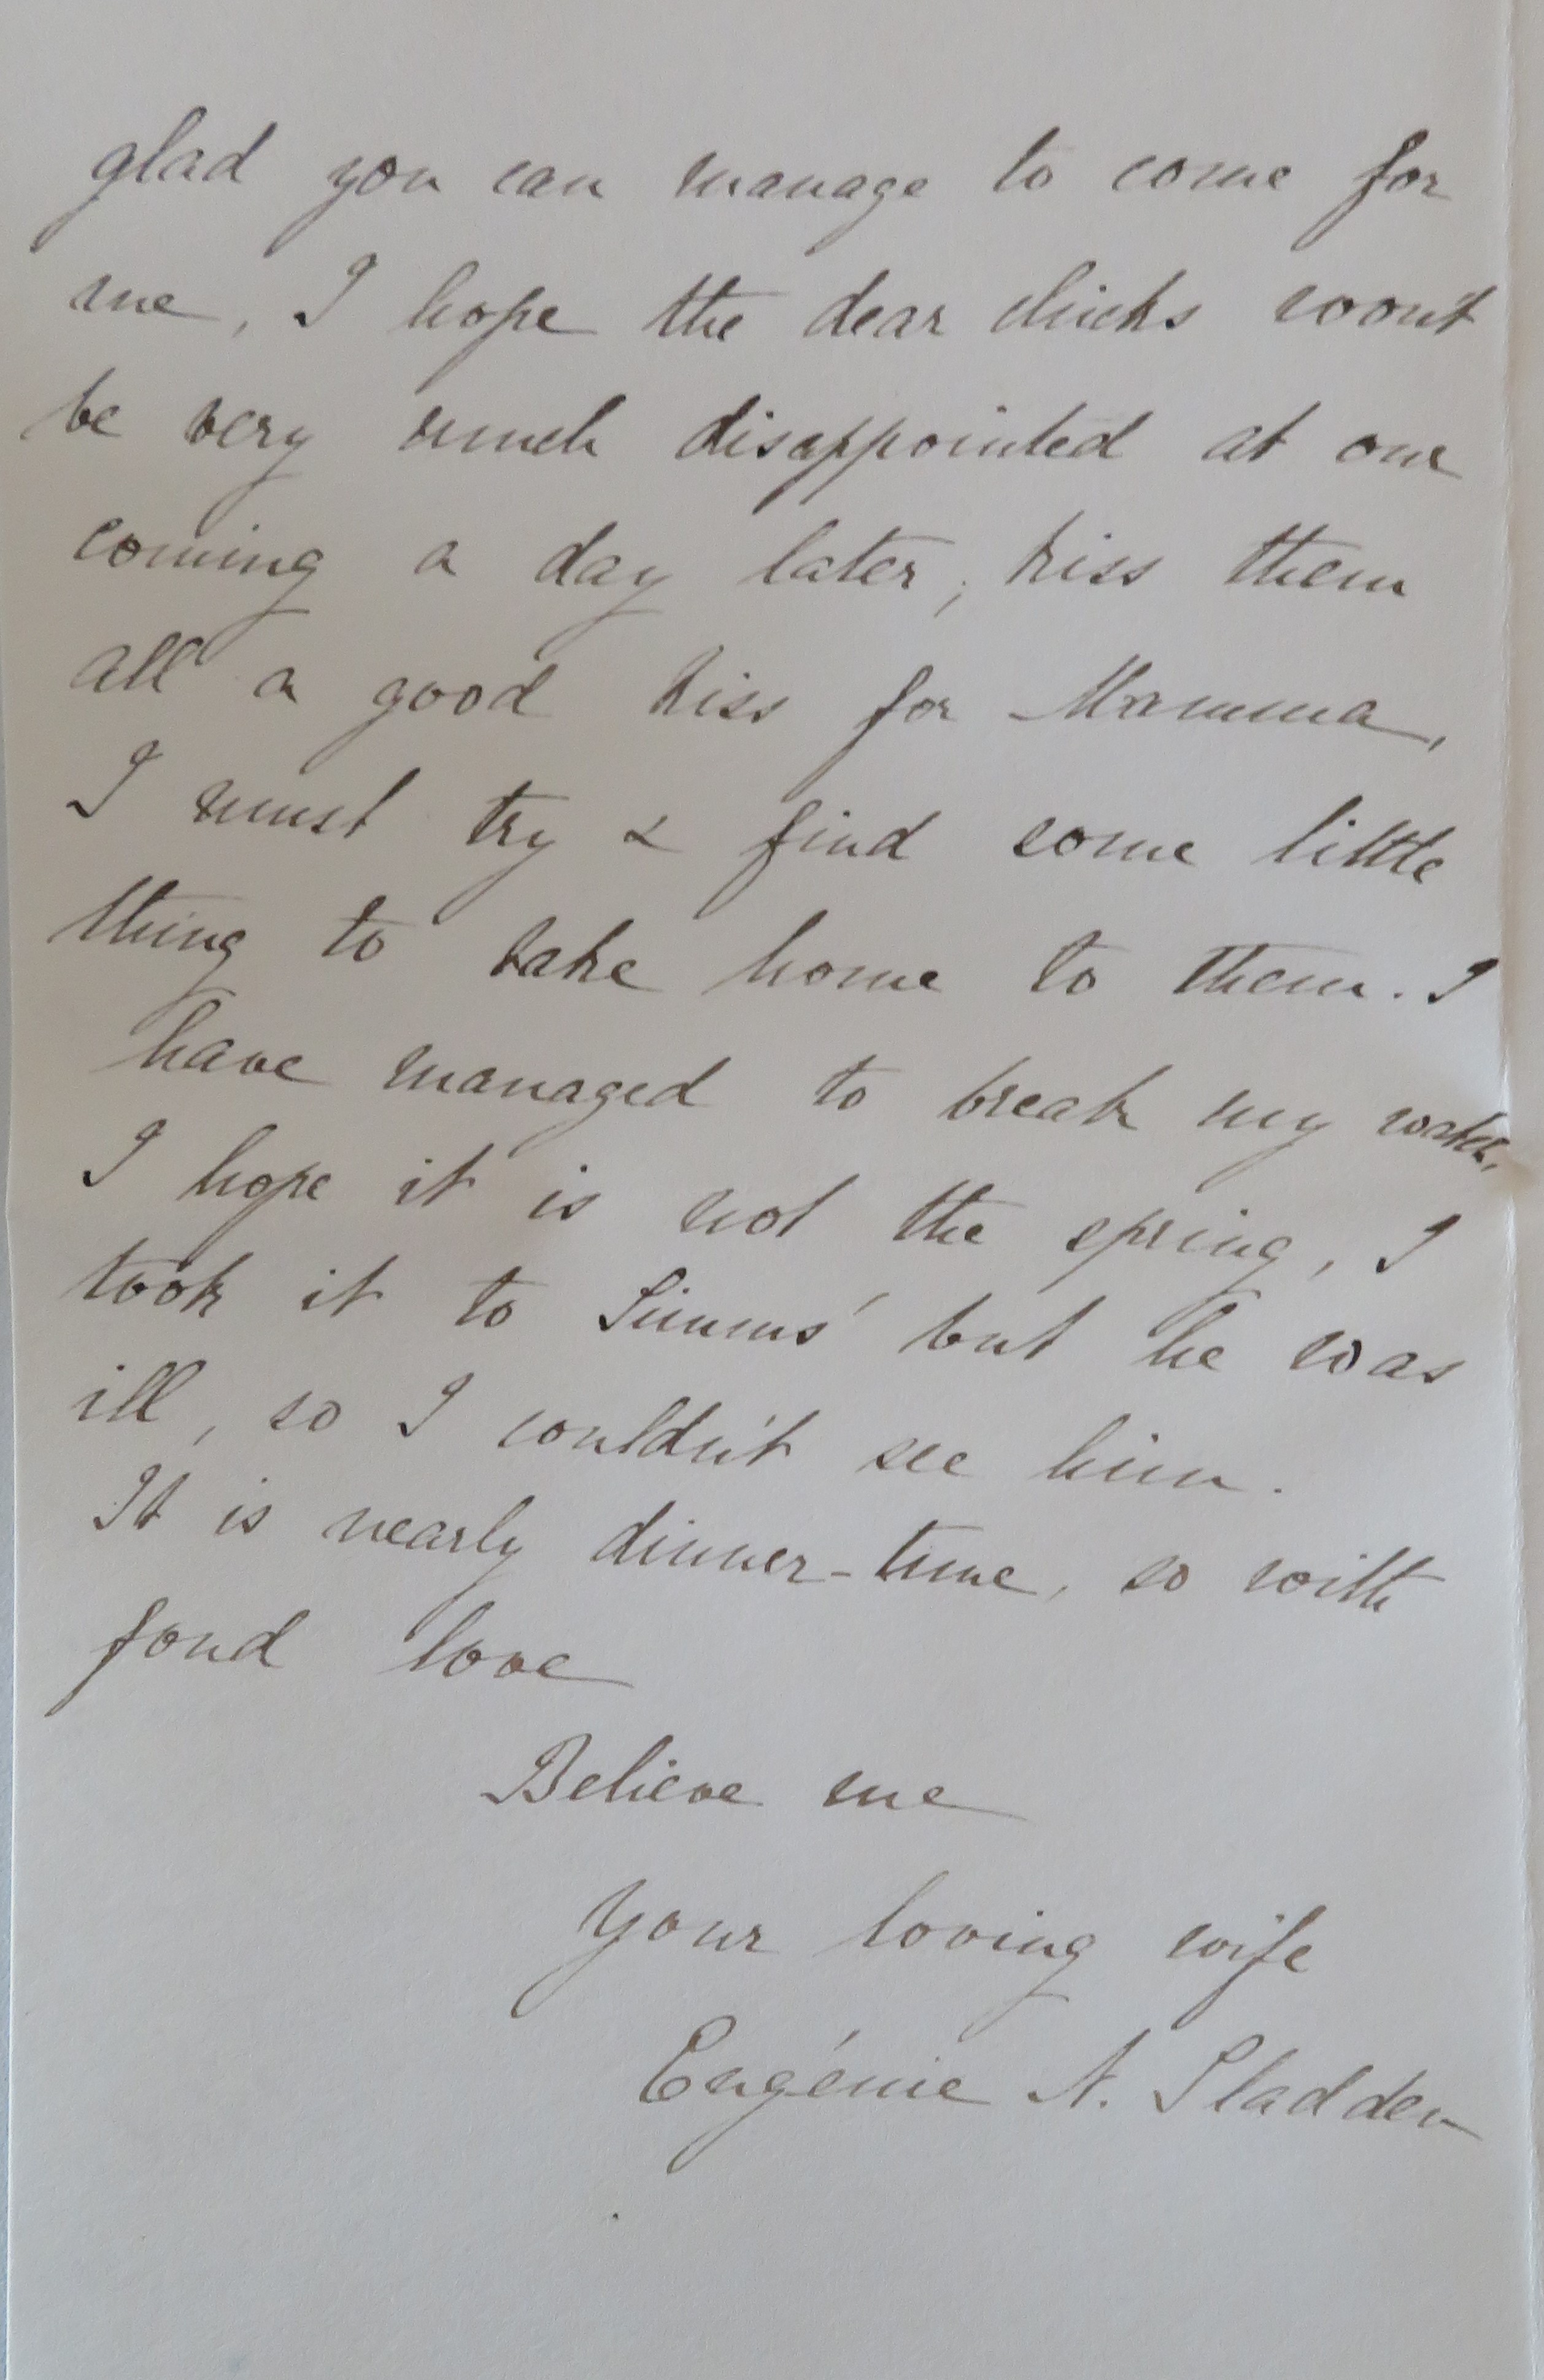 glad you can manage to come for
me, I hope the dear chicks won't
be very much disappointed at our
coming a day later, kiss them
all a good kiss for Mamma,
I must try & find some little
thing to take home to them. I
have managed to break my watch,
I hope it is not the spring, I
took it to Simms' but he was
ill, so I couldn't see him.
It is nearly dinner-time, so with
fond love
Believe me
Your loving wife
Eugénie N. Sladden